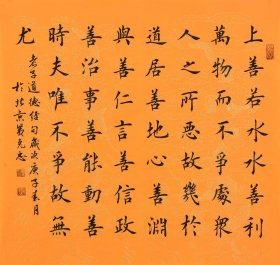 上善若水水善利
萬物而不爭處衆
人之所惡故幾於
道居善地心善淵
與善仁言善信政
善治事善能動善
時夫唯不爭故無
尤
老子道德經句歲次庚子年月
於北京葛克志